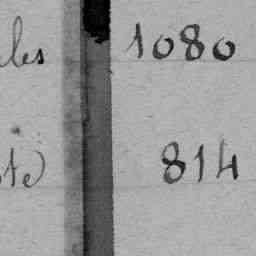 les 1080
te) 814